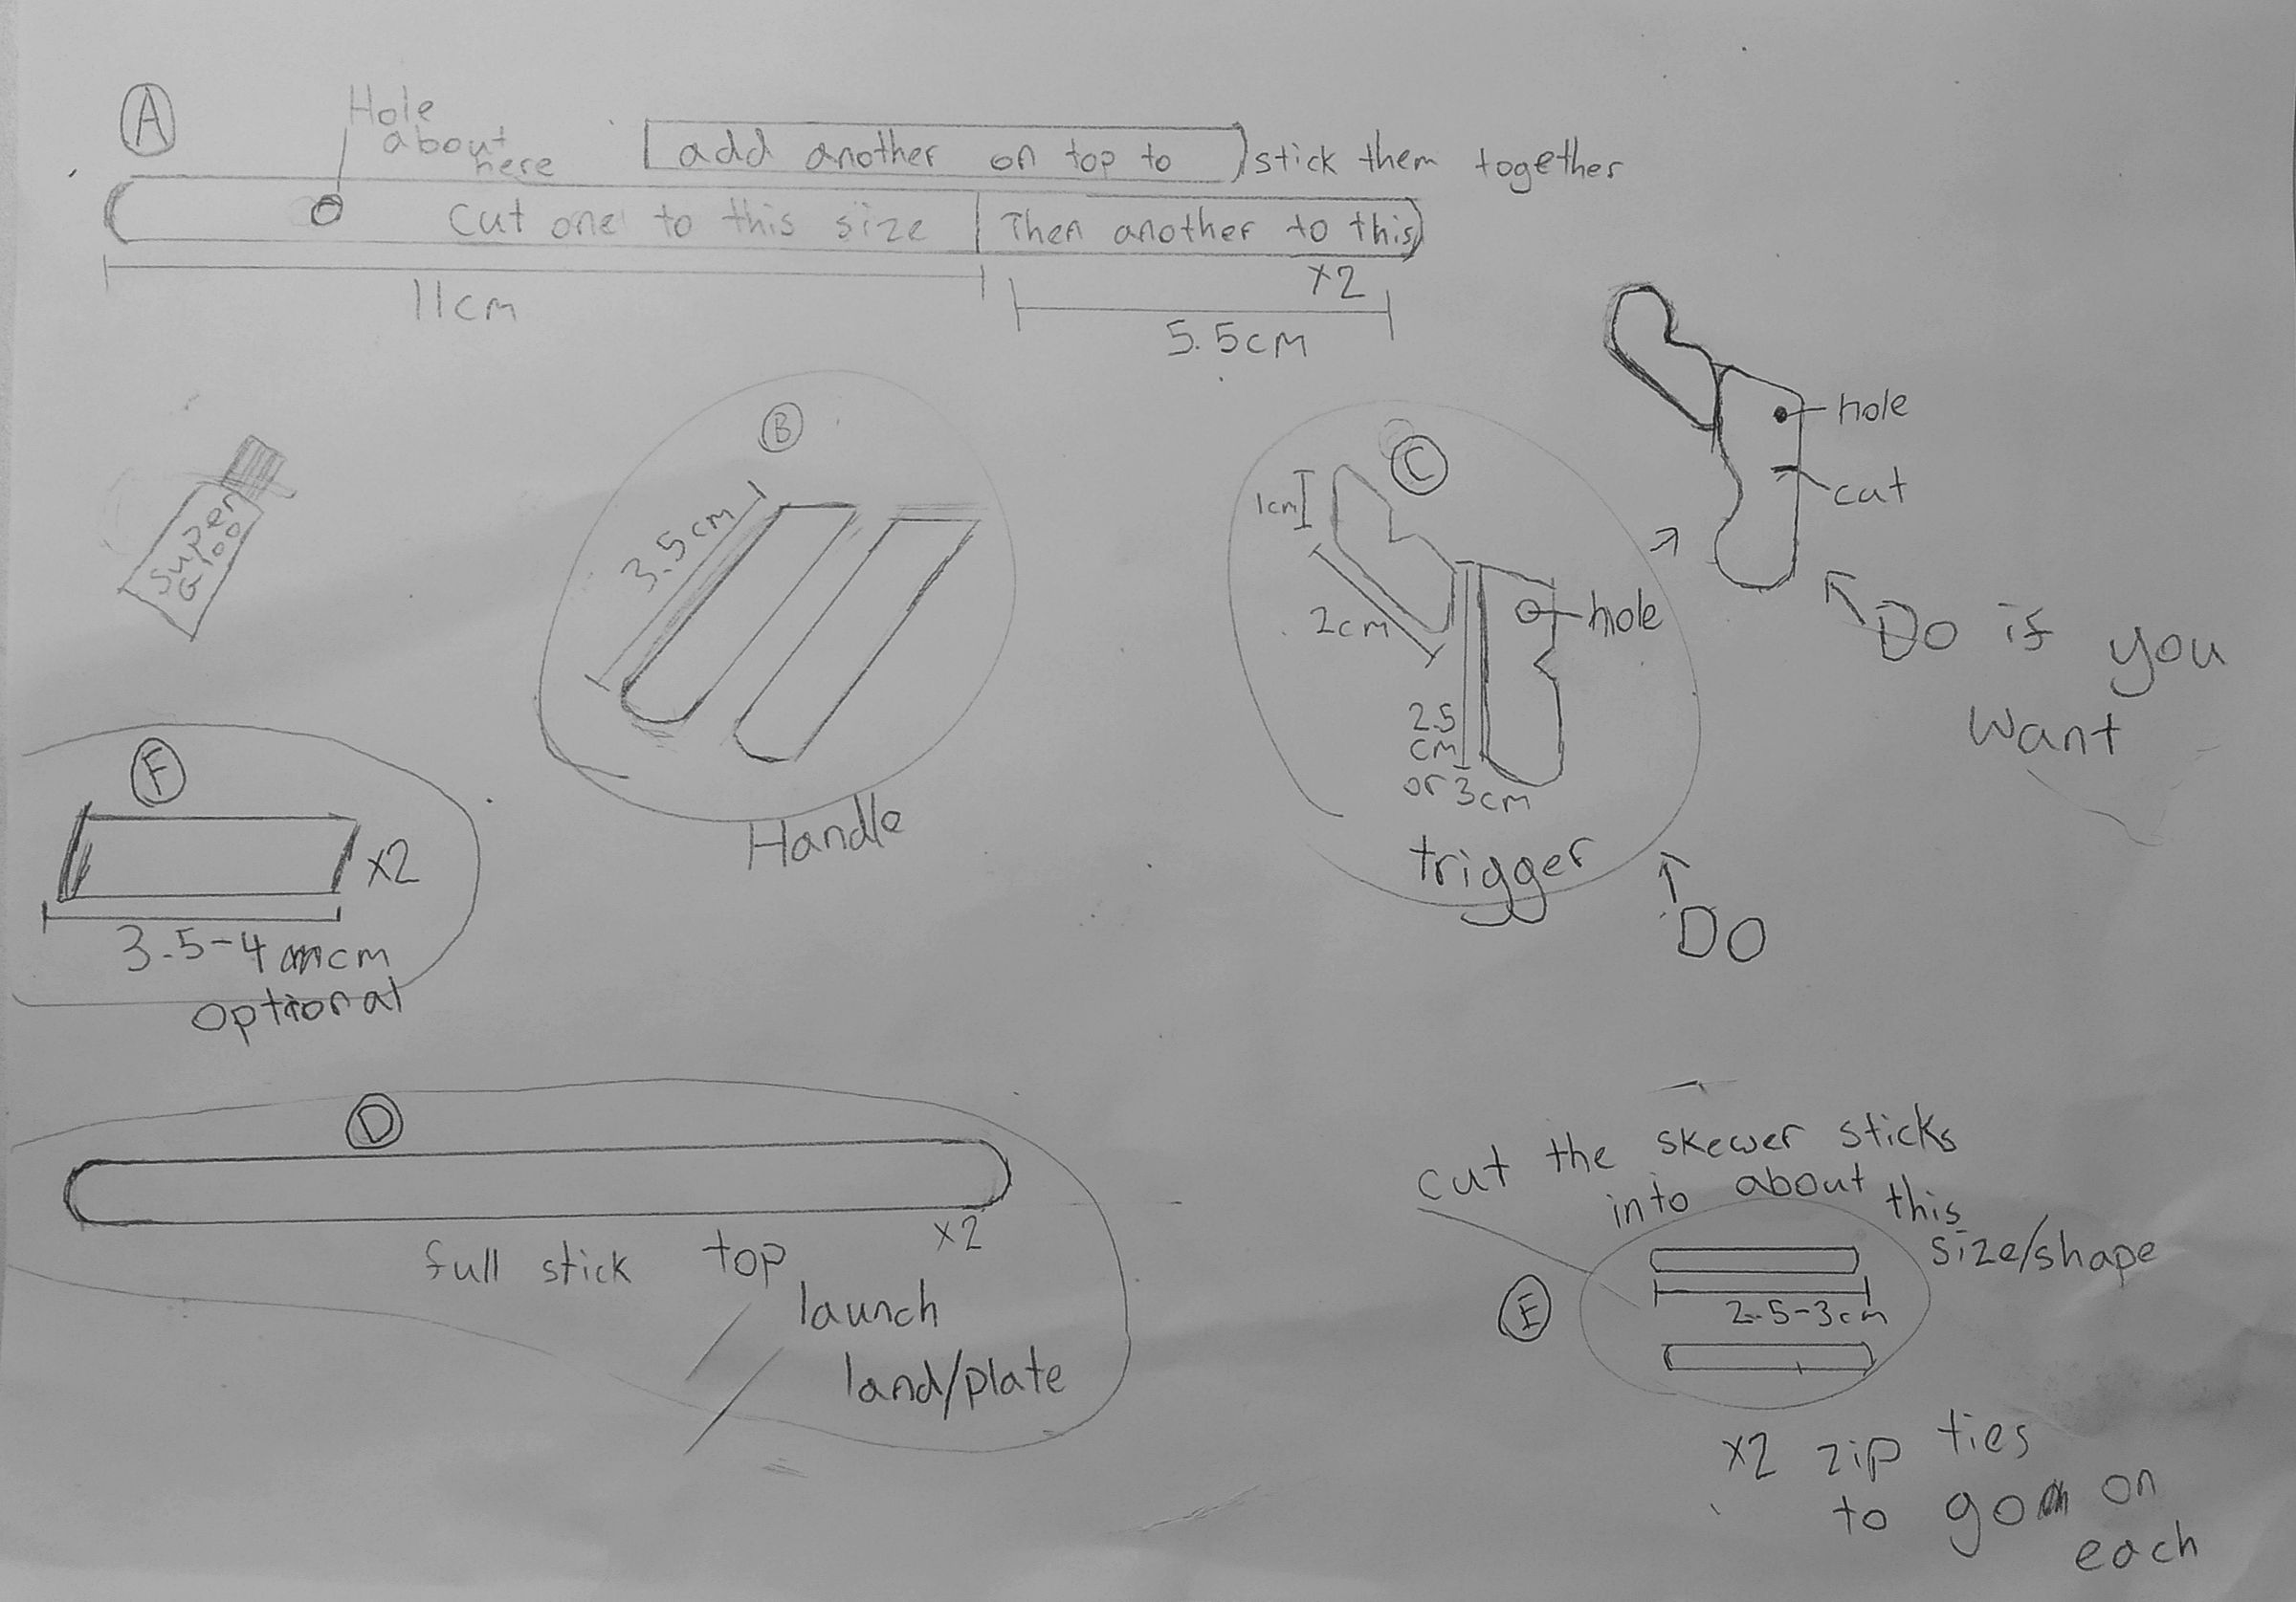 A
Hole
about
here
add another on top to stick them together
cut one to this size
Then another to this
x2
11cm
5.5cm
hole
cut
B
C
1cm
3.5cm
Super
Gloo
hole
2cm
Do if you
want
2.5
cm
or 3cm
F
x2
Handle
trigger
Do
3.5-4 cm
optional
D
x2
full stick top
launch
land/plate
cut the skewer sticks
into about this
size/shape
E
2.5-3cm
x2 zip ties
to go on
each